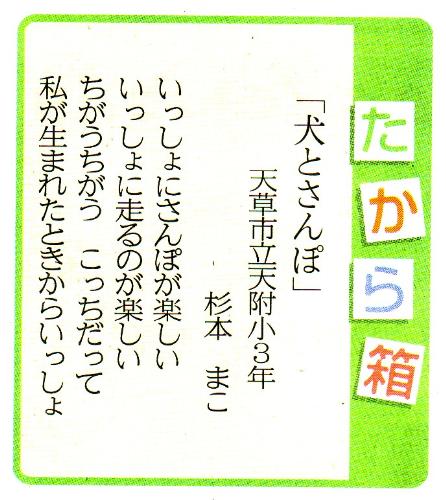 たから箱
「犬とさんぽ」
天草市立天附小3年
杉本 まこ
いっしょにさんぽが楽しい
いっしょに走るのが楽しい
ちがうちがう こっちだって
私が生まれたときからいっしょ